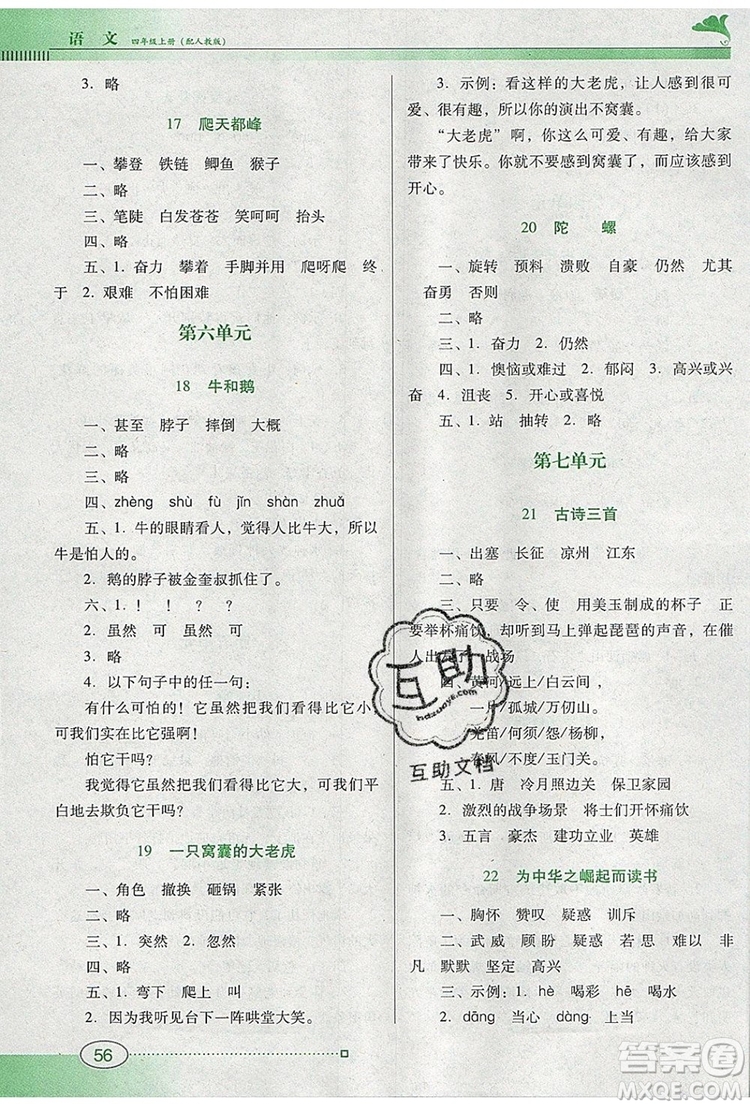 语 文 四年级上册（配人教版）
3. 略
17 爬天都峰
一、攀登 铁链 鲫鱼 猴子
二、略
三、笔陡 白发苍苍 笑呵呵 抬头
四、略
五、1. 奋力 攀着 手脚并用 爬呀爬 终
于 2. 艰难 不怕困难
第六单元
18 牛和鹅
一、甚至 脖子 摔倒 大概
二、略
三、略
四、zhèng shù fù jīn shàn zhuǎ
五、1. 牛的眼睛看人，觉得人比牛大，所以
牛是怕人的。
2. 鹅的脖子被金奎叔抓住了。
六、1. ！ ！ ？ ！
2. 虽然 可 虽然 可
3. 略
4. 以下句子中的任一句：
有什么可怕的！它虽然把我们看得比它小，
可我们实在比它强啊！
怕它干吗？
我觉得它虽然把我们看得比它大，可我们平
白地去欺负它干吗？
19 一只窝囊的大老虎
一、角色 撤换 砸锅 紧张
二、略
三、1. 突然 2. 忽然
四、略
五、1. 弯下 爬上 叫
2. 因为我听见台下一阵哄堂大笑。
56
3. 示例：看这样的大老虎，让人感到很可
爱、很有趣，所以你的演出不窝囊。
“大老虎”啊，你这么可爱、有趣，给大家
带来了快乐。你就不要感到窝囊了，而应该感到
开心。
20 陀 螺
一、旋转 预料 溃败 自豪 仍然 尤其
奋勇 否则
二、略
三、1. 奋力 2. 仍然
四、1. 懊恼或难过 2. 郁闷 3. 高兴或兴
奋 4. 沮丧 5. 开心或喜悦
五、1. 站 抽转 2. 略
第七单元
21 古诗三首
一、出塞 长征 凉州 江东
二、略
三、只要 令、使 用美玉制成的杯子 正
要举杯痛饮，却听到马上弹起琵琶的声音，在催
人出发了 战场
四、黄河/远上/白云间，
一片/孤城/万仞山。
羌笛/何须/怨/杨柳，
春风/不度/玉门关。
五、1. 唐 冷月照边关 保卫家园
2. 激烈的战争场景 将士们开怀痛饮
3. 五言 豪杰 建功立业 英雄
22 为中华之崛起而读书
一、胸怀 赞叹 疑惑 训斥
二、武威 顾盼 疑惑 若思 难以 非
凡 默默 坚定 高兴
三、示例：1. hè 喝彩 hē 喝水
2. dāng 当心 dàng 上当
互助
hdzuoye.com
互助文档
答案圈
MXQE.COM